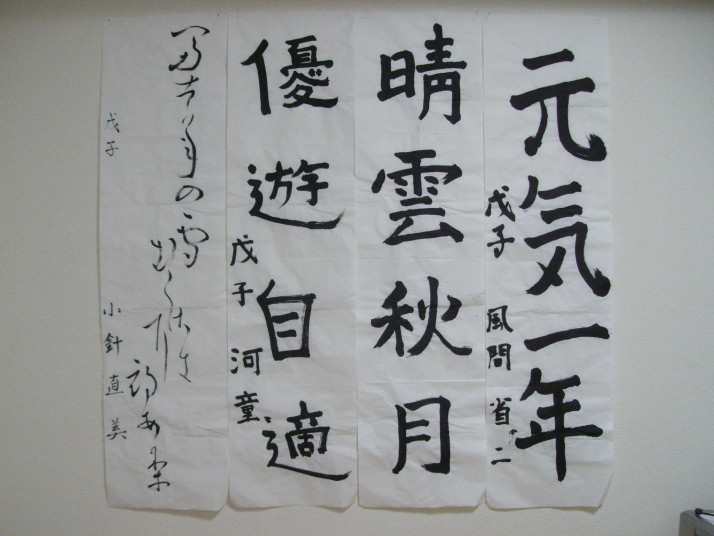 元気一年
戊子 風間 省二
晴雲秋月
優遊自適
戊子 河童
戊子 小針直美